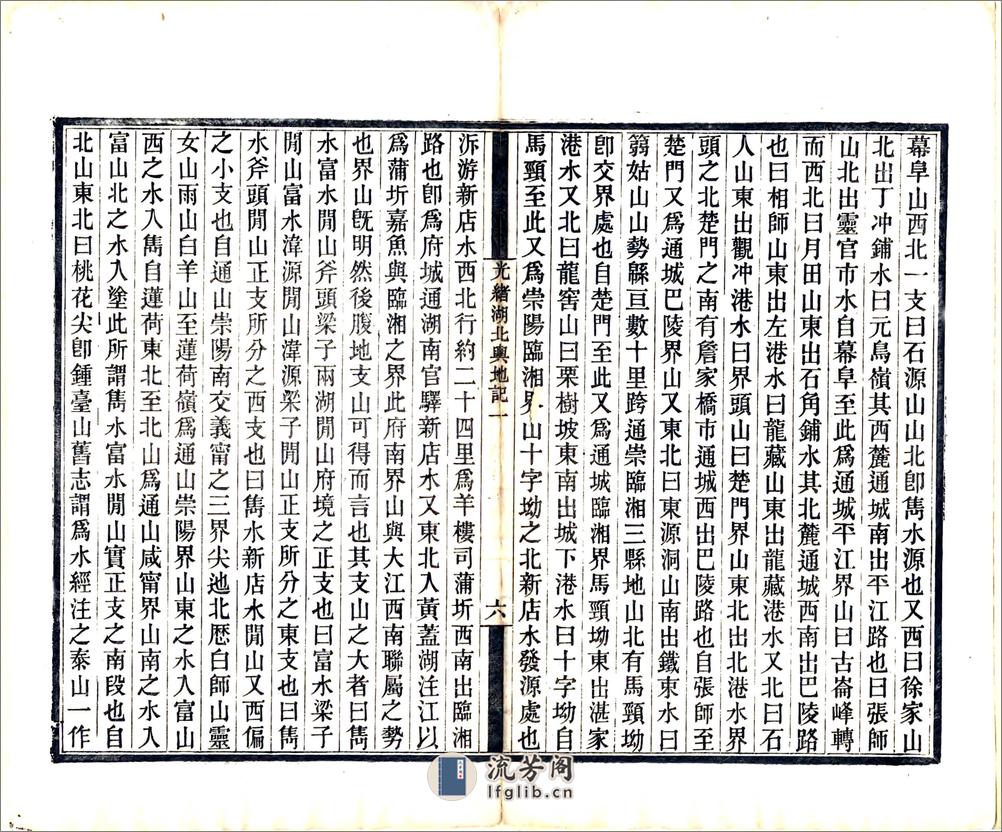 幕阜山西北一支曰石源山山北卽雋水源也又西曰徐家山
北出丁冲鋪水曰元鳥嶺其西麓通城南出平江路也曰張師
山北出靈官市水自幕阜至此爲通城平江界山曰古崙峰轉
而西北曰月田山東出石角鋪水其北麓通城西南出巴陵路
也曰相師山東出左港水曰龍藏山東出龍藏港水又北曰石
人山東出觀冲港水曰界頭山曰楚門界山東北出北港水界
頭之北楚門之南有詹家橋市通城西出巴陵路也自張師至
楚門又爲通城巴陵界山又東北曰東源洞山南出鐵東水曰
篛姑山山勢緜亘數十里跨通崇臨湘三縣地山北有馬頸坳
卽交界處也自楚門至此又爲通城臨湘界馬頸坳東出湛家
港水又北曰龍窖山曰栗樹坡東南出城下港水曰十字坳自
馬頸至此又爲崇陽臨湘界山十字坳之北新店水發源處也
光緒湖北輿地記一
六
泝游新店水西北行約二十四里爲羊樓司蒲圻西南出臨湘
路也卽爲府城通湖南官驛新店水又東北入黃蓋湖注江以
爲蒲圻嘉魚與臨湘之界此府南界山與大江西南聯屬之勢
也界山旣明然後腹地支山可得而言也其支山之大者曰雋
水富水閒山斧頭梁子兩湖閒山府境之正支也曰富水梁子
閒山富水湋源閒山湋源梁子閒山正支所分之東支也曰雋
水斧頭閒山正支所分之西支也曰雋水新店水閒山又西偏
之小支也自通山崇陽南交義甯之三界尖迆北歷白師山靈
女山雨山白羊山至蓮荷嶺爲通山崇陽界山東之水入富山
西之水入雋自蓮荷東北至北山爲通山咸甯界山南之水入
富山北之水入塗此所謂雋水富水閒山實正支之南段也自
北山東北曰桃花尖卽鍾臺山舊志謂爲水經注之泰山一作
流芳阁
lfglib.cn